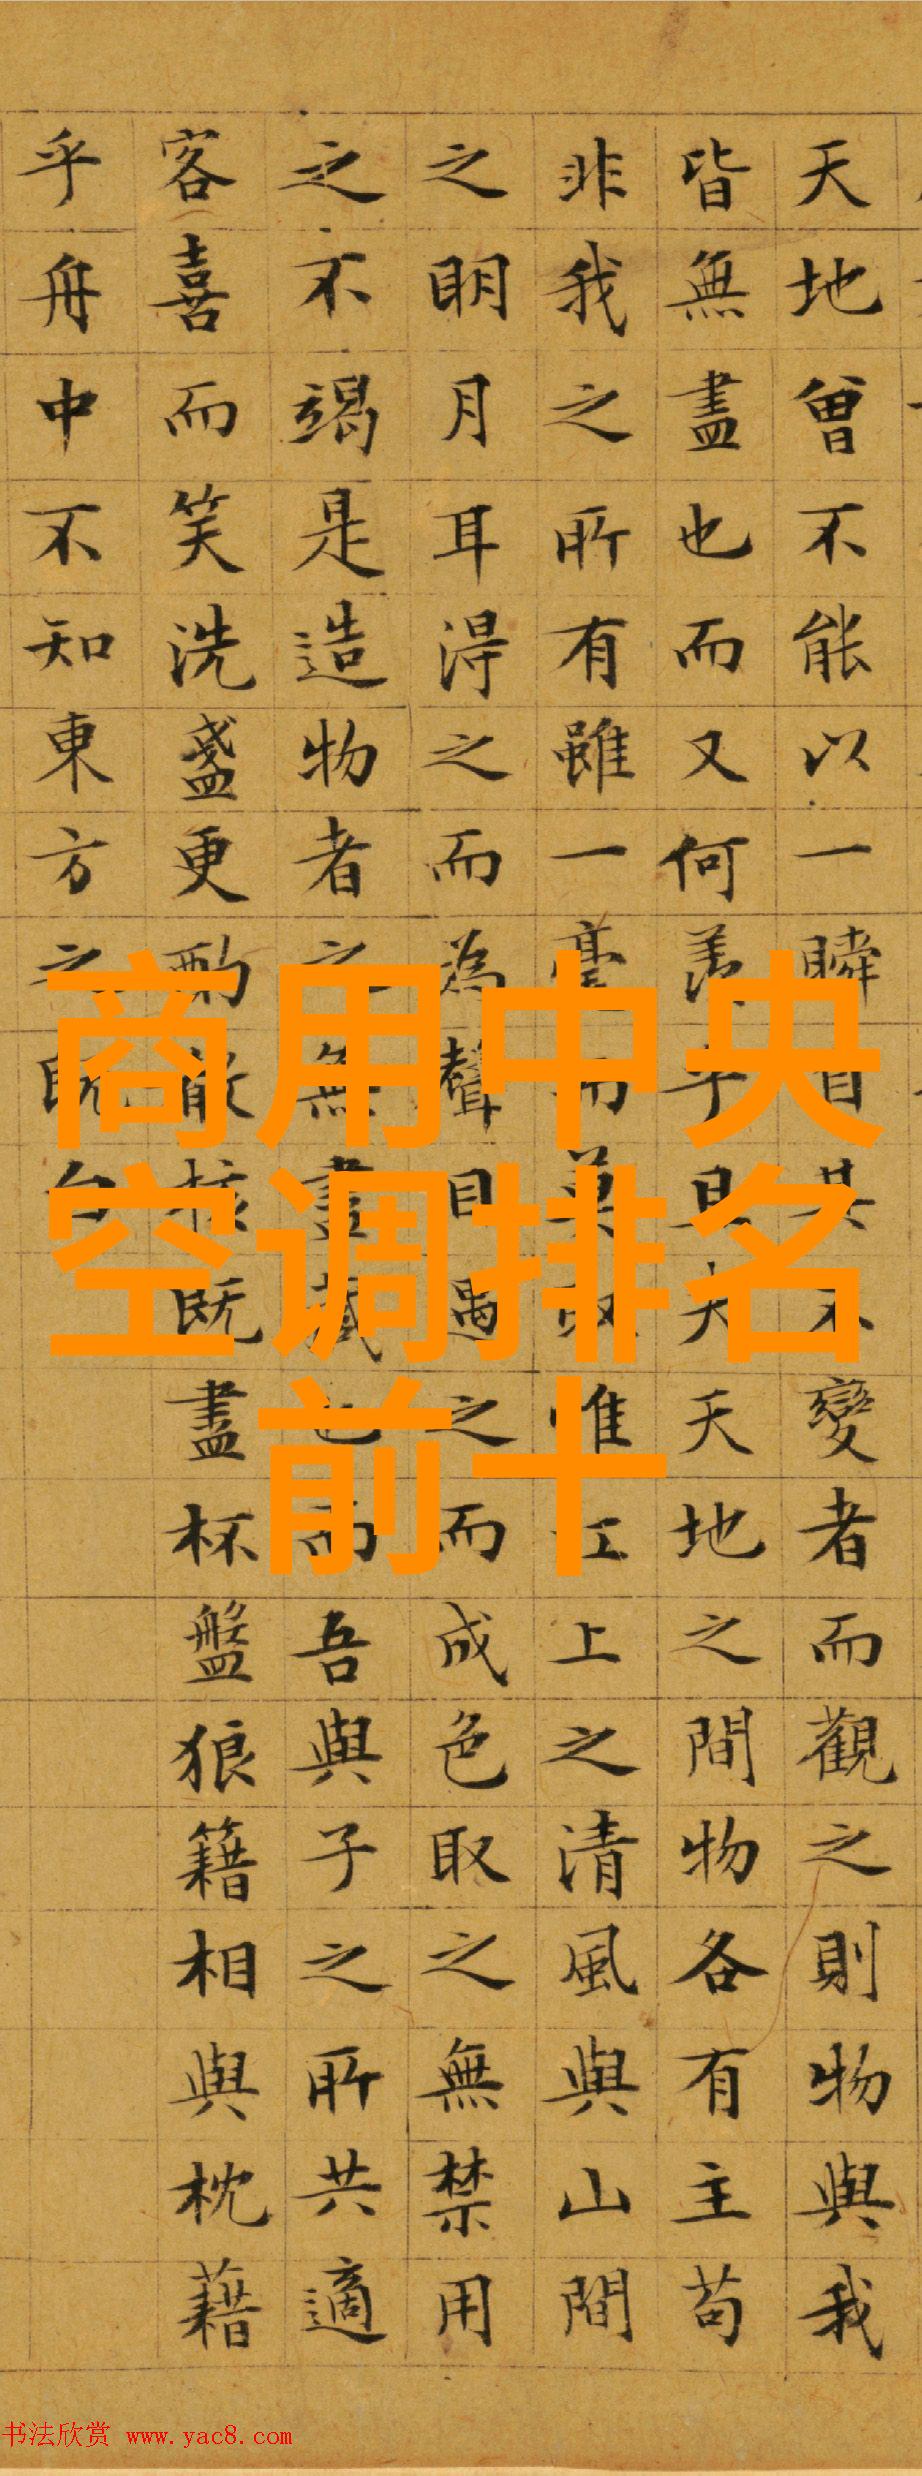 天地曾不能以一瞬自其不變者而觀之則物與我
皆無盡也而又何羨乎且夫天地之間物各有主苟
非我之所有雖一毫而莫取惟江上之清風與山間
之明月耳得之而為聲目遇之而成色取之無禁用
之不竭是造物者之無盡藏也而吾與子之所共適
客喜而笑洗盞更酌散核既盡杯盤狼籍相與枕藉
乎舟中不知東方之既白
商用中央
空调排名
前十
书法欣赏 www.yac8.com